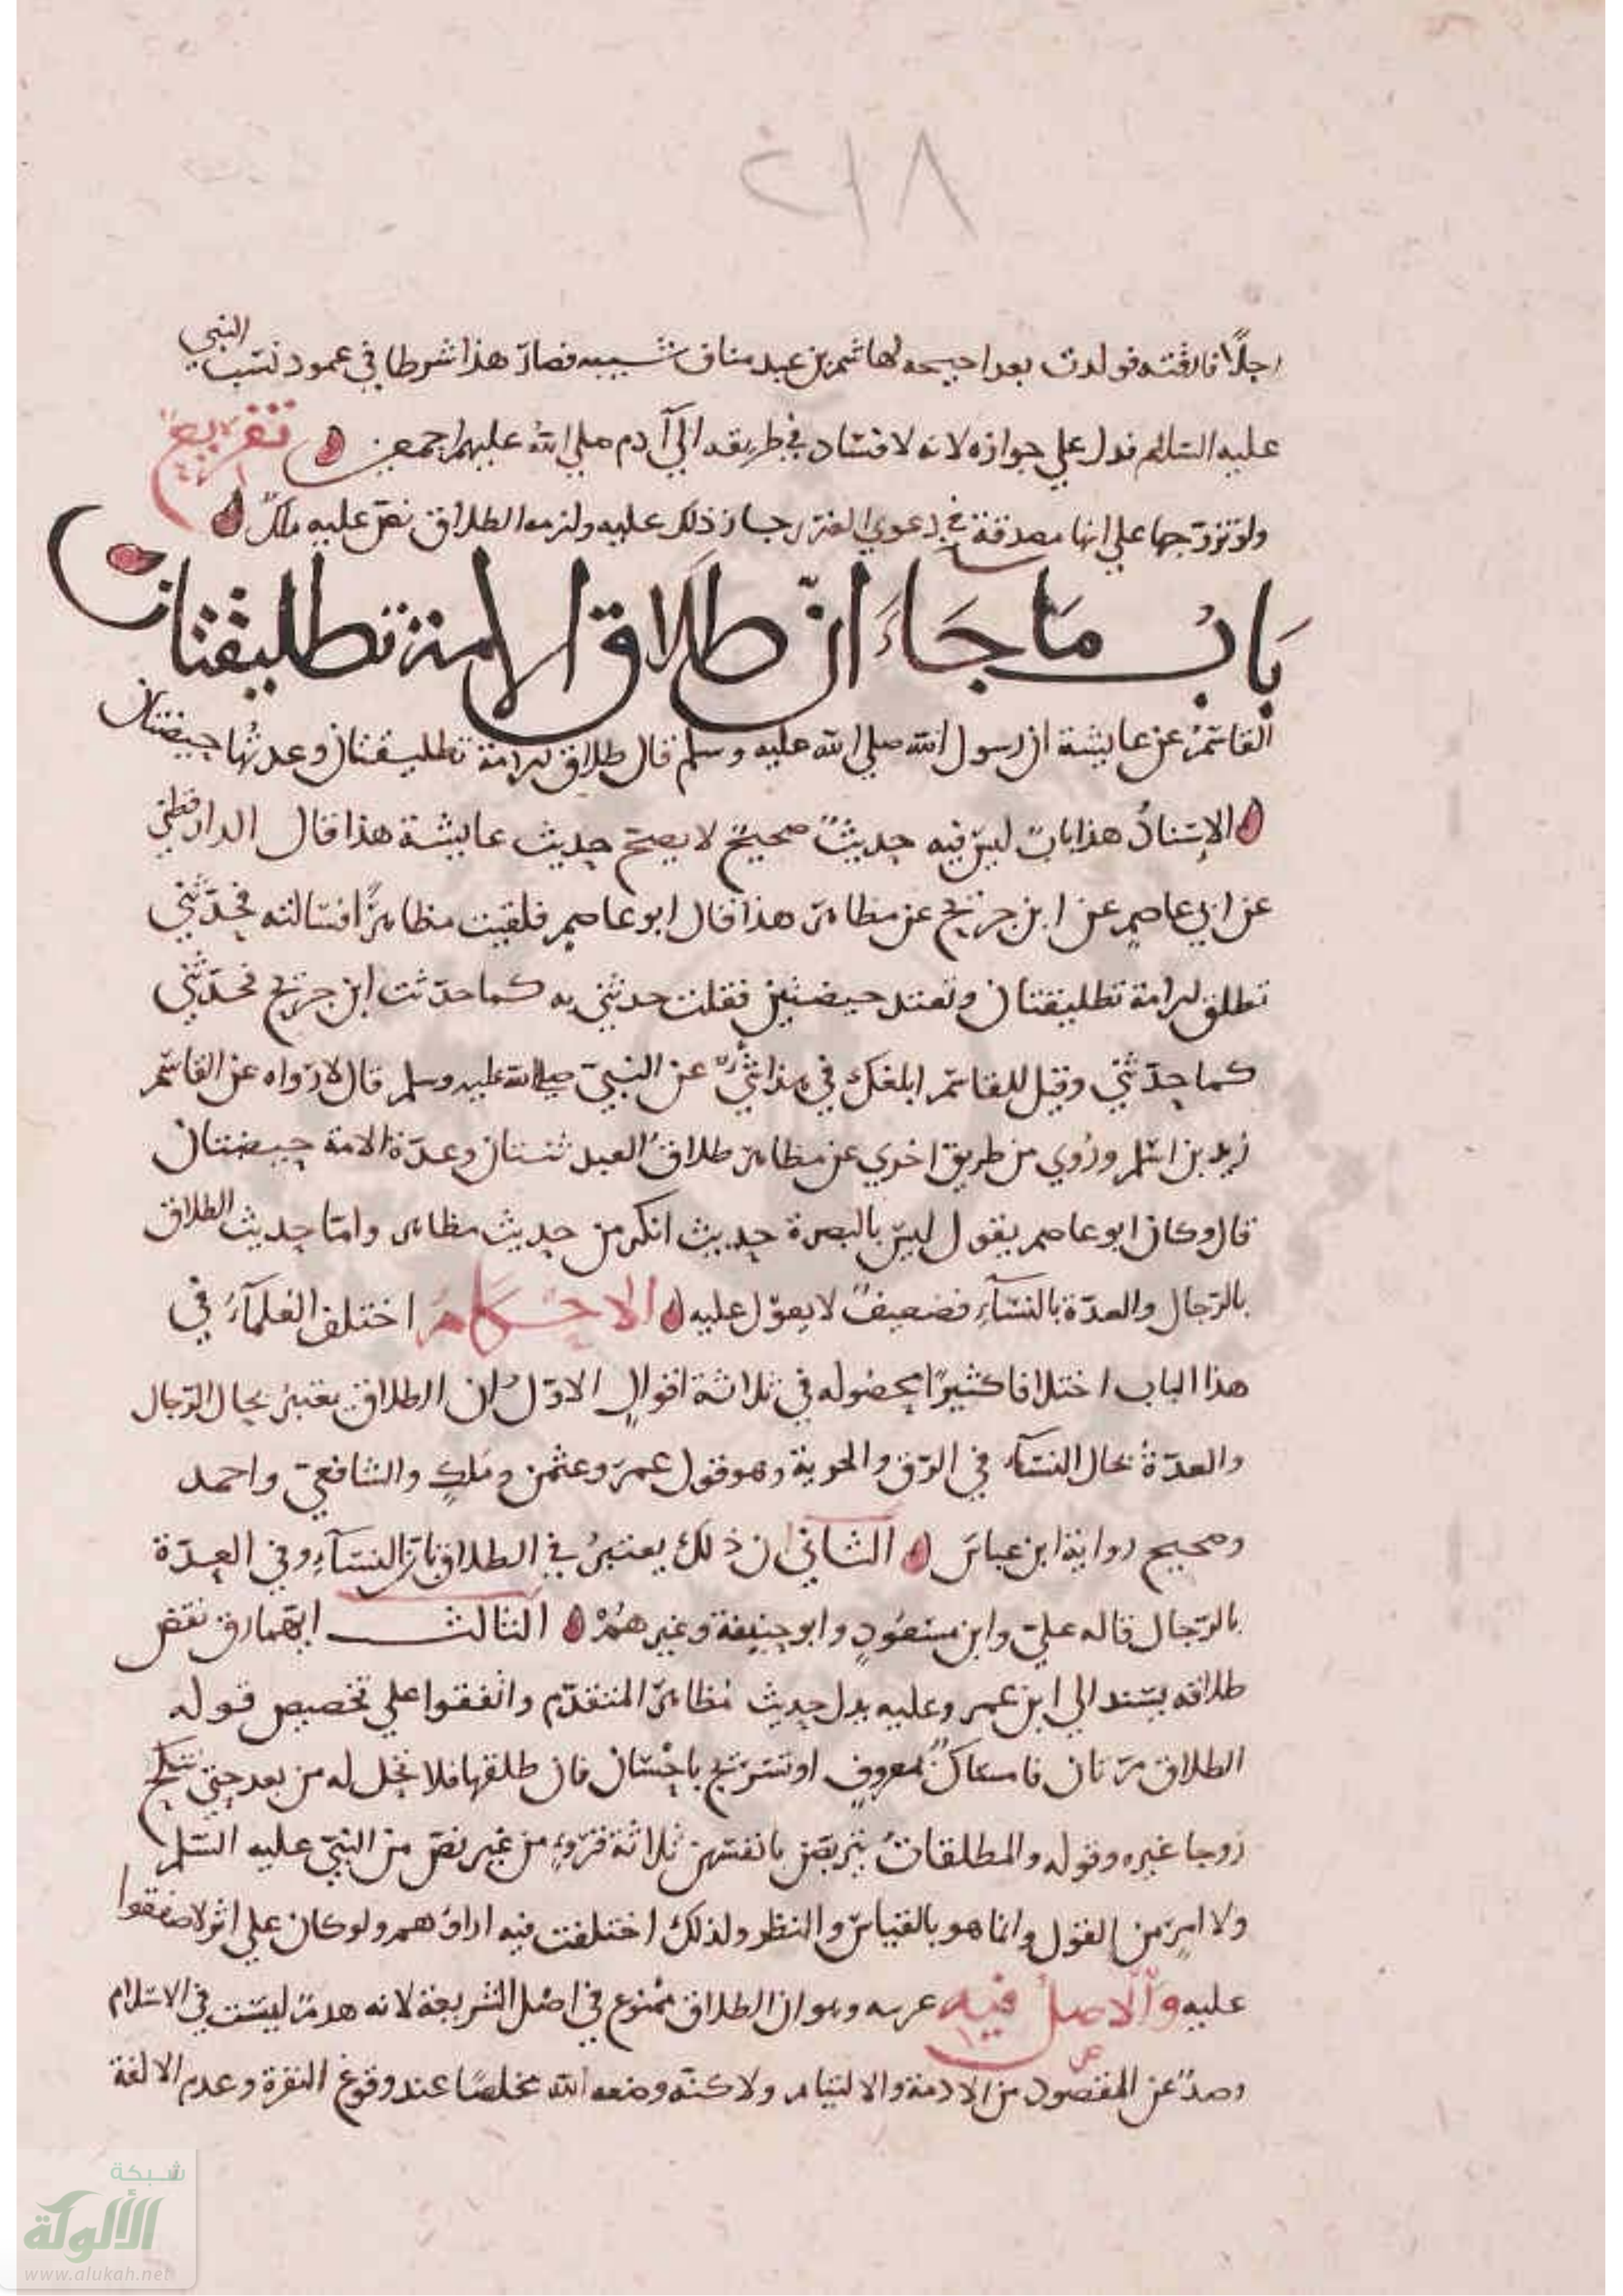 ٢١٨
رجلًا فارقته فولدت بعد احيحه لهاشم بن عبد مناف شيبه فصار هذا شرطا في عمود نسب النبي
عليه السلام فدل علي جوازه لانه لا فساد في طريقه الي آدم صلي الله عليهم اجمعين تفريع
ولو تزوجها علي انها مصدقة في دعوي الضرر جاز ذلك عليه ولزمه الطلاق نص عليه ملك
بَابُ مَا جَاءَ انّ طلَاق الامة تطليقتان
القاسم عن عايشة ان رسول الله صلي الله عليه وسلم قال طلاق الامة تطليقتان وعدتها حيضتان
الاسنادُ هذا بابٌ ليس فيه حديثٌ صحيحٌ لا يصح حديث عايشة هذا قال الدارقطني
عن ابي عاصم عن ابن جريج عن مظاهر هذا قال ابو عاصم فلقيت مظاهرًا فسالته فحدّثني
تطلق الامة تطليقتان وتعتد حيضتين فقلت حدثني به كما حدّثت ابن جريج فحدّثني
كما حدّثني وقيل للقاسم ابلغك في هذا شيٌ عن النبيّ صلى الله عليه وسلم قال لا رواه عن القاسم
زيد بن اسلم ورُوي من طريق اخري عن مظاهر طلاقُ العبد ثنتان وعدّة الامة حيضتان
قال وكان ابو عاصم يقول ليس بالبصرة حديث انكر من حديث مظاهر وامّا حديث الطلاق
بالرّجال والعدّة بالنسآءِ فضعيفٌ لا يعوّل عليه الاحكام اختلف العلمآءُ في
هذا الباب اختلافا كثيرًا محصوله في ثلاثة اقوالٍ الاوّلُ ان الطلاق يعتبرُ بحال الرّجال
والعدّةُ بحال النسآء في الرّق والحرية وهو قول عمر وعثمن وملكٍ والشافعيّ واحمد
وصحيح رواية ابن عباس الثاني ان ذلك يعتبرُ في الطلاق بالنسآءِ وفي العِدّة
بالرّجال قاله عليّ وابن مسعُودٍ وابو حنيفة وغيرهُمْ الثالث ايهما رق نقص
طلاقه يسند الي ابن عمر وعليه يدل حديث مظاهر المتقدّم واتفقوا علي تخصيص قوله
الطلاق مرّتان فامساكٌ بمعروفٍ او تسريحٌ باحسَان فان طلقها فلا تحل له من بعد حتى تنكح
زوجا غيره وقوله والمطلقاتُ يتربّصن بانفسهن ثلاثة قروءٍ من غير نصّ من النبيّ عليه السّلم
ولا امرٍ من القول وانما هو بالقياس والنظر ولذلك اختلفت فيه اراؤهم ولو كان علي اثر لاصفقوا
عليه والاصلُ فيه وهو ان الطلاق ممنوع في اصل الشريعة لانه هدمٌ ليست في الاسلام
وصدٌ عن المقصود من الادمة والالتيام ولاكنه وضعه الله مخلصًا عند وقوع النفرة وعدم الالفة
شبكة
الألوكة
www.alukah.net